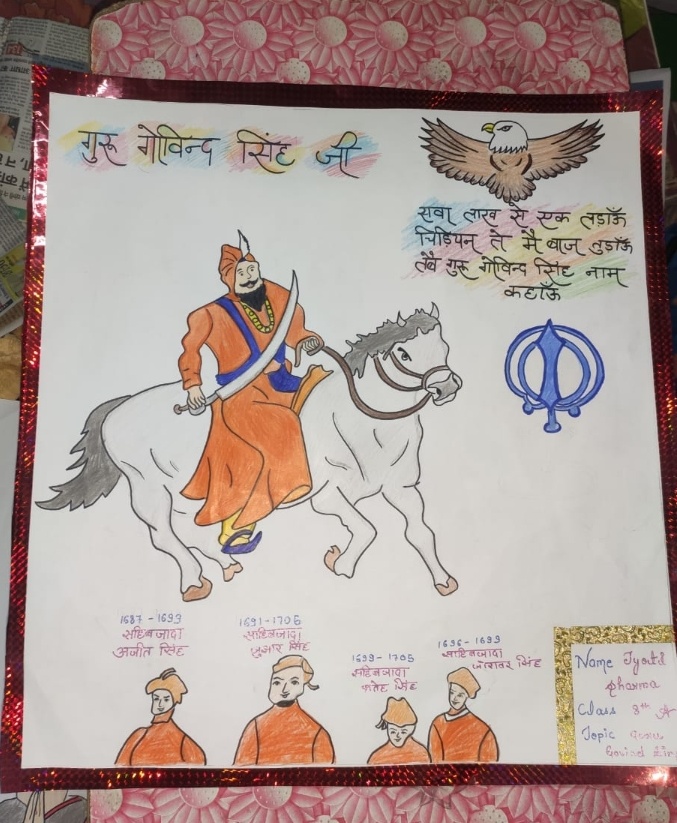 गुरू गोविन्द सिंह जी
सवा लाख से एक लडाऊँ
चिडियन ते मै बाज तुडाऊँ
तबै गुरू गोविन्द सिंह नाम
कहाऊँ
1687 - 1699
सहिबजादा
अजीत सिंह
1691 - 1705
साहिबजादा
जुझार सिंह
1699 - 1705
साहिबजादा
फतेह सिंह
1696 - 1699
साहिबजादा
जोरावर सिंह
Name Jyoti
Sharma
Class 8th A
Topic Guru
Govind Sin